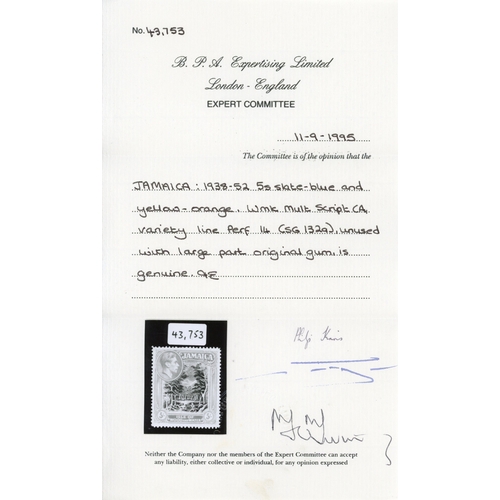 No. 43,753
B. P. A. Expertising Limited
London - England
EXPERT COMMITTEE
11-9-1995
The Committee is of the opinion that the
JAMAICA: 1938-52 5s slate-blue and
yellow-orange, Wmk Mult Script CA,
variety line Perf 14 (SG 132a), unused
with large part original gum, is
genuine.
43,753
JAMAICA
Neither the Company nor the members of the Expert Committee can accept
any liability, either collective or individual, for any opinion expressed